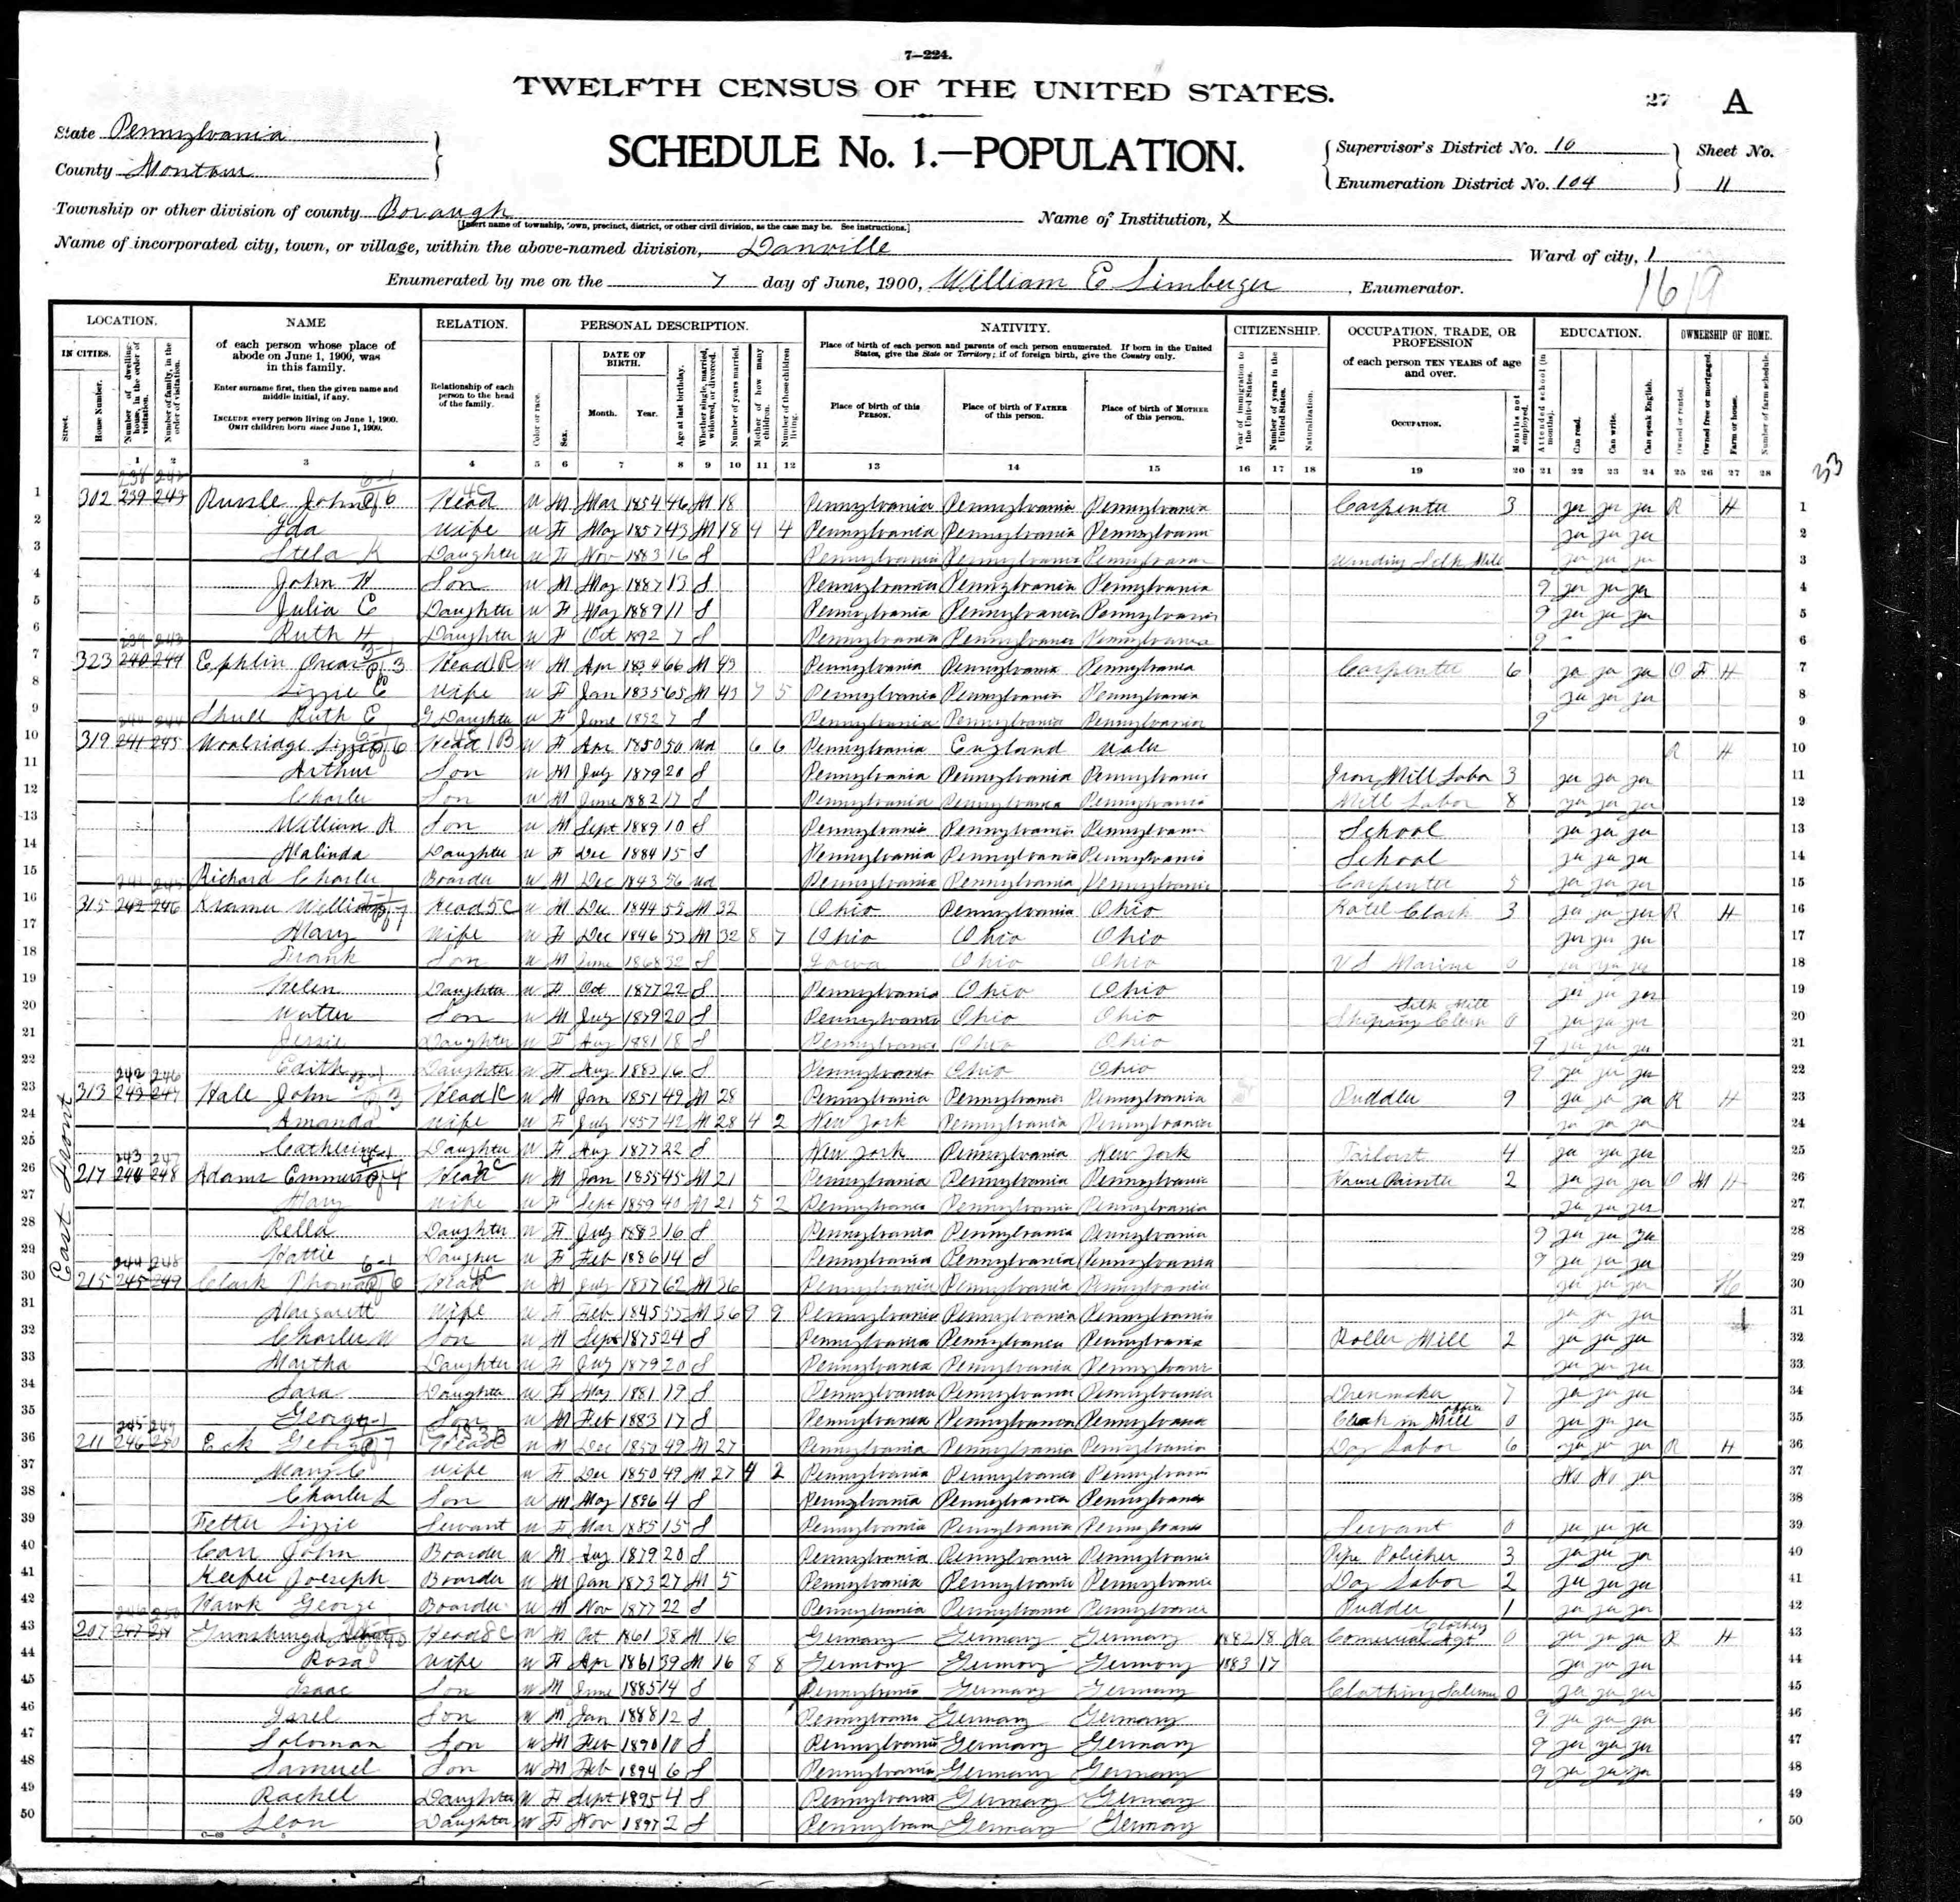 7—224.
TWELFTH CENSUS OF THE UNITED STATES.
27 A
State Pennsylvania
County Montour
SCHEDULE No. 1.—POPULATION.
Supervisor's District No. 10
Enumeration District No. 104
Sheet No. 11
Township or other division of county Borough
[Insert name of township, town, precinct, district, or other civil division, as the case may be. See instructions.]
Name of Institution, X
Name of incorporated city, town, or village, within the above-named division, Danville
Ward of city, 1
Enumerated by me on the 7 day of June, 1900, William E Limberger, Enumerator.
1619
LOCATION. NAME RELATION. PERSONAL DESCRIPTION. NATIVITY. CITIZENSHIP. OCCUPATION, TRADE, OR PROFESSION EDUCATION. OWNERSHIP OF HOME.
IN CITIES. Street. House Number. Number of dwelling-house, in the order of visitation. Number of family, in the order of visitation.
of each person whose place of abode on June 1, 1900, was in this family.
Enter surname first, then the given name and middle initial, if any.
INCLUDE every person living on June 1, 1900. OMIT children born since June 1, 1900.
Relationship of each person to the head of the family.
Color or race. Sex. DATE OF BIRTH. Month. Year. Age at last birthday. Whether single, married, widowed, or divorced. Number of years married. Mother of how many children. Number of these children living.
Place of birth of each person and parents of each person enumerated. If born in the United States, give the State or Territory; if of foreign birth, give the Country only.
Place of birth of this PERSON. Place of birth of FATHER of this person. Place of birth of MOTHER of this person.
Year of immigration to the United States. Number of years in the United States. Naturalization.
of each person TEN YEARS of age and over.
OCCUPATION. Months not employed.
Attended school (in months). Can read. Can write. Can speak English.
Owned or rented. Owned free or mortgaged. Farm or house. Number of farm schedule.
1 2 3 4 5 6 7 8 9 10 11 12 13 14 15 16 17 18 19 20 21 22 23 24 25 26 27 28
East Front
1 302 239 243 John Head W M Mar 1854 46 M 18 Pennsylvania Pennsylvania Pennsylvania Carpenter 3 yes yes yes R H 1
2 Ida Wife W F May 1857 43 M 18 4 4 Pennsylvania Pennsylvania Pennsylvania yes yes yes 2
3 Stela K Daughter W F Nov 1883 16 S Pennsylvania Pennsylvania Pennsylvania Silk Mill yes yes yes 3
4 John W Son W M May 1887 13 S Pennsylvania Pennsylvania Pennsylvania 9 yes yes yes 4
5 Julia C Daughter W F May 1889 11 S Pennsylvania Pennsylvania Pennsylvania 9 yes yes yes 5
6 Ruth H Daughter W F Oct 1892 7 S Pennsylvania Pennsylvania Pennsylvania 9 6
7 323 240 244 Ephlin Head W M Apr 1834 66 M 43 Pennsylvania Pennsylvania Pennsylvania Carpenter 6 yes yes yes O F H 7
8 Lizzie C Wife W F Jan 1835 65 M 43 7 5 Pennsylvania Pennsylvania Pennsylvania yes yes yes 8
9 Shull Ruth E G Daughter W F June 1892 7 S Pennsylvania Pennsylvania Pennsylvania 9 9
10 319 241 245 Woolridge Lizzie Head W F Apr 1850 50 Wd 6 6 Pennsylvania England Wales R H 10
11 Arthur Son W M July 1879 20 S Pennsylvania Pennsylvania Pennsylvania Iron Mill Labor 3 yes yes yes 11
12 Charles Son W M June 1882 17 S Pennsylvania Pennsylvania Pennsylvania Mill Labor 8 yes yes yes 12
13 William R Son W M Sept 1889 10 S Pennsylvania Pennsylvania Pennsylvania School yes yes yes 13
14 Malinda Daughter W F Dec 1884 15 S Pennsylvania Pennsylvania Pennsylvania School yes yes yes 14
15 Richard Charles Boarder W M Dec 1843 56 Wd Pennsylvania Pennsylvania Pennsylvania Carpenter 5 yes yes yes 15
16 315 242 246 Kramer William Head W M Dec 1844 55 M 32 Ohio Pennsylvania Ohio Hotel Clark 3 yes yes yes R H 16
17 Mary Wife W F Dec 1846 53 M 32 8 7 Ohio Ohio Ohio yes yes yes 17
18 Frank Son W M June 1868 32 S Iowa Ohio Ohio US Marine 0 yes yes yes 18
19 Helen Daughter W F Oct 1877 22 S Pennsylvania Ohio Ohio yes yes yes 19
20 Walter Son W M July 1879 20 S Pennsylvania Ohio Ohio Shiping Clerk Silk Mill 0 yes yes yes 20
21 Jessie Daughter W F Aug 1881 18 S Pennsylvania Ohio Ohio 9 yes yes yes 21
22 Edith Daughter W F Aug 1883 16 S Pennsylvania Ohio Ohio 9 yes yes yes 22
23 313 243 247 Hale John Head W M Jan 1851 49 M 28 Pennsylvania Pennsylvania Pennsylvania Puddler 9 yes yes yes R H 23
24 Amanda Wife W F July 1857 42 M 28 4 2 New York Pennsylvania Pennsylvania yes yes yes 24
25 Catherine Daughter W F Aug 1877 22 S New York Pennsylvania New York 4 yes yes yes 25
26 217 244 248 Adams Head W M Jan 1855 45 M 21 Pennsylvania Pennsylvania Pennsylvania House Painter 2 yes yes yes O M H 26
27 Mary Wife W F Sept 1859 40 M 21 5 2 Pennsylvania Pennsylvania Pennsylvania yes yes yes 27
28 Rella Daughter W F July 1883 16 S Pennsylvania Pennsylvania Pennsylvania 9 yes yes yes 28
29 Hattie Daugher W F Feb 1886 14 S Pennsylvania Pennsylvania Pennsylvania 9 yes yes yes 29
30 215 245 249 Clark Thomas Head W M July 1837 62 M 36 Pennsylvania Pennsylvania Pennsylvania yes yes yes H 30
31 Margarett Wife W F Feb 1845 55 M 36 9 9 Pennsylvania Pennsylvania Pennsylvania yes yes yes 31
32 Charles W Son W M Sept 1875 24 S Pennsylvania Pennsylvania Pennsylvania Roller Mill 2 yes yes yes 32
33 Martha Daughter W F July 1879 20 S Pennsylvania Pennsylvania Pennsylvania yes yes yes 33
34 Sara Daughter W F May 1881 19 S Pennsylvania Pennsylvania Pennsylvania Dressmaker 7 yes yes yes 34
35 George Son W M Feb 1883 17 S Pennsylvania Pennsylvania Pennsylvania Clerk in Mill office 0 yes yes yes 35
36 211 246 250 Eck George Head W M Dec 1850 49 M 27 Pennsylvania Pennsylvania Pennsylvania Day Labor 6 yes yes yes R H 36
37 Mary C Wife W F Dec 1850 49 M 27 4 2 Pennsylvania Pennsylvania Pennsylvania No No yes 37
38 Charles L Son W M May 1896 4 S Pennsylvania Pennsylvania Pennsylvania 38
39 Fetter Lizzie Servant W F Mar 1885 15 S Pennsylvania Pennsylvania Pennsylvania Servant 0 yes yes yes 39
40 Carr John Boarder W M Aug 1879 20 S Pennsylvania Pennsylvania Pennsylvania Pipe Policher 3 yes yes yes 40
41 Keefer Joeseph Boarder W M Jan 1873 27 M 5 Pennsylvania Pennsylvania Pennsylvania Day Labor 2 yes yes yes 41
42 Hawk George Boarder W M Nov 1877 22 S Pennsylvania Pennsylvania Pennsylvania Pudder 1 yes yes yes 42
43 207 247 251 Head W M Oct 1861 38 M 16 Germany Germany Germany 1882 18 Na Comercial Agt 0 yes yes yes R H 43
44 Rosa Wife W F Apr 1861 39 M 16 8 8 Germany Germany Germany 1883 17 yes yes yes 44
45 Isaac Son W M June 1885 14 S Pennsylvania Germany Germany Clothing 0 yes yes yes 45
46 Isrel Son W M Jan 1888 12 S Pennsylvania Germany Germany 9 yes yes yes 46
47 Soloman Son W M Feb 1890 10 S Pennsylvania Germany Germany 9 yes yes yes 47
48 Samuel Son W M Feb 1894 6 S Pennsylvania Germany Germany 9 yes yes yes 48
49 Rachel Daughter W F Sept 1895 4 S Pennsylvania Germany Germany 49
50 Leon Daughter W F Nov 1897 2 S Pennsylvania Germany Germany 50